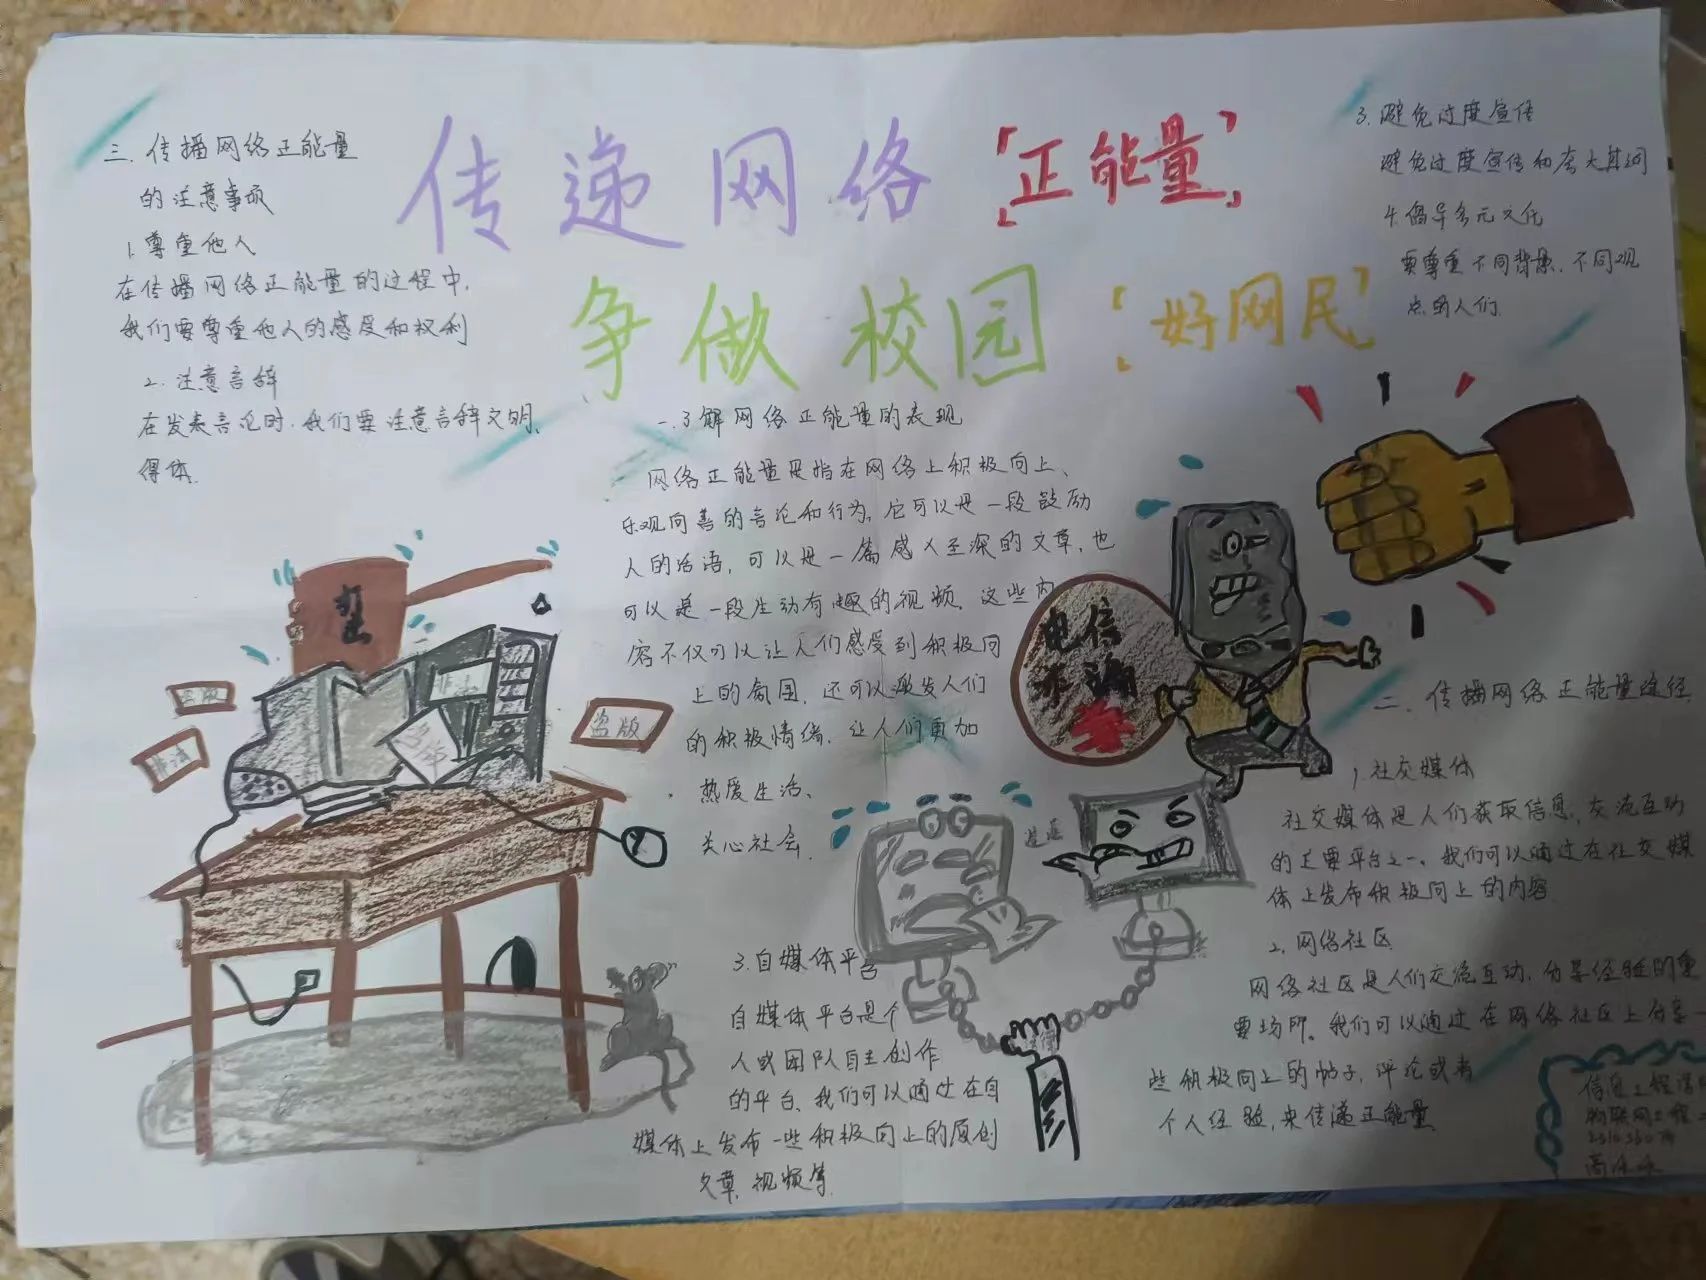 传递网络「正能量」
争做校园「好网民」
一.了解网络正能量的表现
网络正能量是指在网络上积极向上、
乐观向善的言论和行为,它可以是一段鼓励
人的话语,可以是一篇感人至深的文章,也
可以是一段生动有趣的视频。这些内
容不仅可以让人们感受到积极向
上的氛围,还可以激发人们
的积极情绪,让人们更加
热爱生活、
关心社会.
二.传播网络正能量途径
1.社交媒体
社交媒体是人们获取信息,交流互动
的主要平台之一。我们可以通过在社交媒
体上发布积极向上的内容
2.网络社区
网络社区是人们交流互动,分享经验的重
要场所。我们可以通过在网络社区上分享一
些积极向上的帖子,评论或者
个人经验,来传递正能量
3.自媒体平台
自媒体平台是个
人或团队自主创作
的平台、我们可以通过在自
媒体上发布一些积极向上的原创
文章,视频等
三.传播网络正能量
的注意事项
1.尊重他人
在传播网络正能量的过程中,
我们要尊重他人的感受和权利
2.注意言辞
在发表言论时.我们要注意言辞文明、
得体.
3.避免过度宣传
避免过度宣传和夸大其词
4.倡导多元文化
要尊重不同背景、不同观
点的人们.
打击
盗版
非法
盗版
非法
电信
诈骗
造谣
信息工程
物联网工程